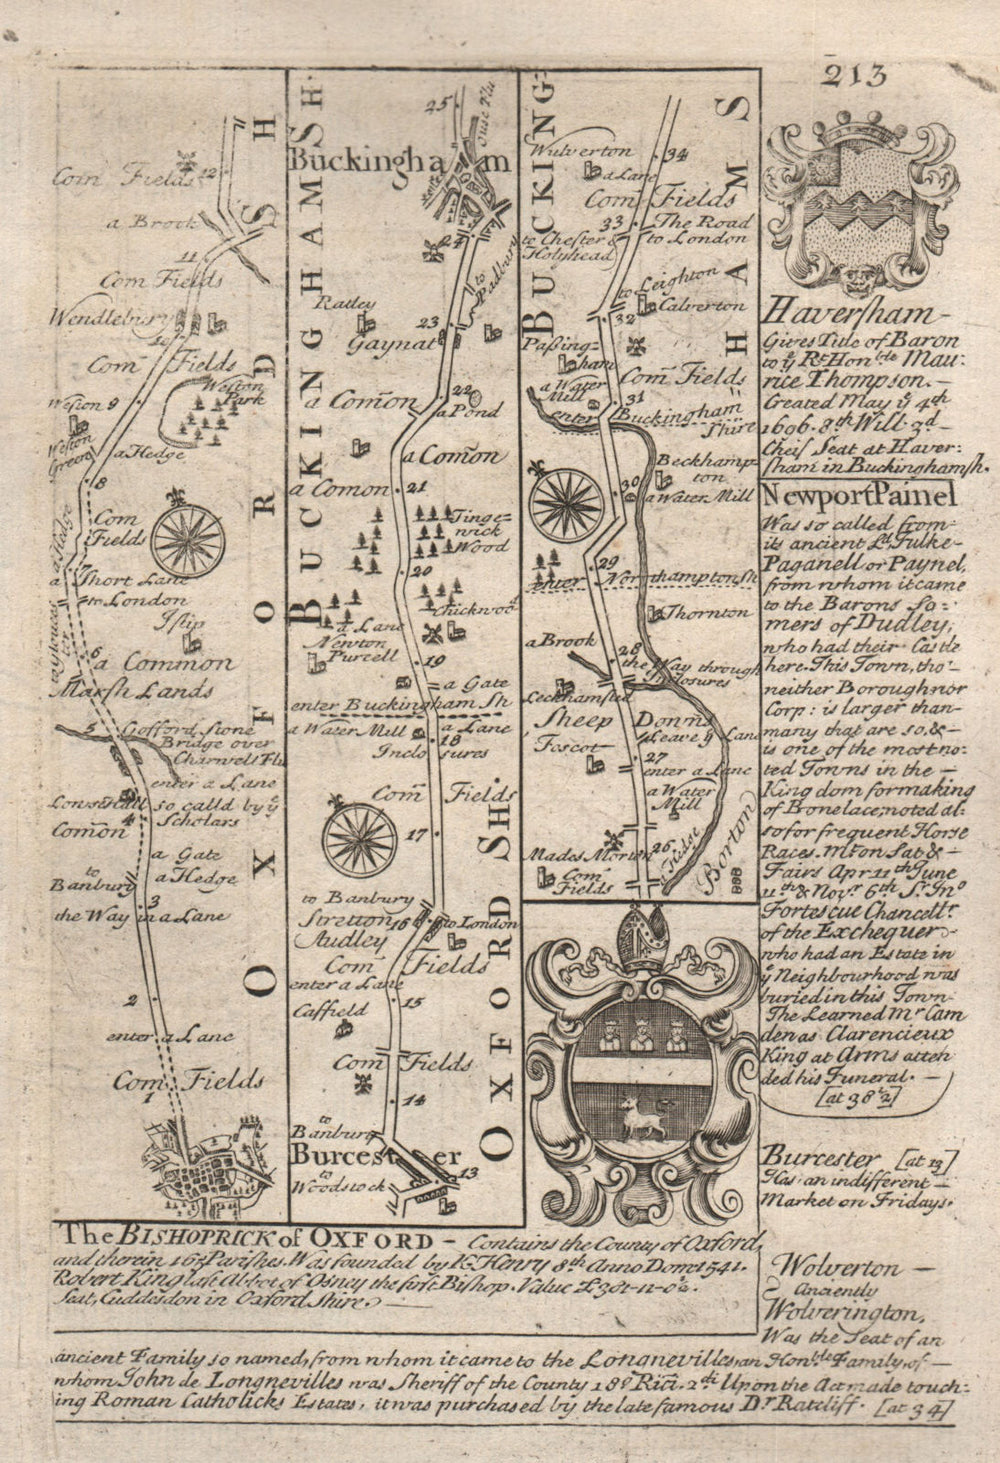 213
Corn Fields
12
a Brook
11
Corn Fields
Wendlebury
10
Corn Fields
Weston
Park
Weston 9
Weston
Green
a Hedge
8
Corn
Fields
7
a Short Lane
to London
Islip
6
a Common
Marsh Lands
5
Gosford Stone
Bridge over
Charwell Flu
enter a Lane
so calld by yͤ
Scholars
4
Comōn
a Gate
a Hedge
to
Banbury
3
the Way in a Lane
2
enter a Lane
Corn Fields
1
OXFORDSH
BUCKINGHAMSH.
25
Ouse Flu
Buckingham
24
to Padbury
Ratley
23
Gaynat
22
a Comōn
a Pond
a Comōn
a Comon
21
Tinge=
wick
Wood
20
Chickwood
a Lane
Newton
Purcell
19
a Gate
enter Buckingham Sh
a Water Mill
a Lane
18
Inclosures
Corn Fields
17
to Banbury
Stretton
Audley
16
to London
Corn Fields
enter a Lane
15
Caffield
Corn Fields
14
to
Banbury
Burcester
13
to
Woodstock
OXFORDSHI
BUCKING=
HAMS
Wulverton
34
a Lane
Corn Fields
33
The Road
to London
to Chester &
Holyhead
to Leighton
Calverton
32
Paßing=
ham
Corn Fields
a Water
Mill
31
enter Buckingham
Shire
Beckhamp=
ton
30
a Water Mill
29
enter Northampton Sh
Thornton
a Brook
28
the Way through
Inclosures
Leckhamsted
Sheep Downs
Leave yͤ Lane
Foscot
27
enter a Lane
a Water
Mill
Mades Morton
26
a Hedge
Corn
Fields
Borton
Haversham—
Gives Title of Baron
to yͤ Rᵗ Honᵇˡᵉ Mau=
rice Thompson.—
Created May yͤ 4ᵗʰ
1696. 8ᵗʰ Will. 3ᵈ—
Cheif Seat at Haver=
sham in Buckinghamsh.
Newport Painel
Was so called from
its ancient Lᵈ Fulke
Paganell or Paynel,
from whom it came
to the Barons So=
mers of Dudley,
who had their Castle
here. This Town, tho'
neither Borough nor
Corp: is larger than
many that are so, &—
is one of the most no=
ted Towns in the—
Kingdom for making
of Bonelace; noted al=
so for frequent Horse
Races. Mᵏᵗ on Sat. &—
Fairs Apr. 11ᵗʰ June
11ᵗʰ & Novʳ 6ᵗʰ Sʳ Jnᵒ
Fortescue Chancellʳ
of the Exchequer
who had an Estate in
yͤ Neighbourhood was
buried in this Town
The Learned Mʳ Cam
den as Clarencieux
King at Arms atten
ded his Funeral.—
[at 38½]
Burcester [at 13]
Has an indifferent—
Market on Fridays.
Wolverton—
Anciently
Wolverington,
Was the Seat of an
The BISHOPRICK of OXFORD— Contains the County of Oxford,
and therein Parishes. Was founded by K. Henry 8ᵗʰ Anno Dom: 1541.
Robert King last Abbot of Osney the first Bishop. Value £381-11-0½.
Seat, Cuddesdon in Oxfordshire.—
ancient Family so named, from whom it came to the Longnevilles, an Honᵇˡᵉ Family, of—
whom John de Longnevilles was Sheriff of the County 18º Ric. 2ᵈⁱ Upon the Act made touch=
ing Roman Catholicks Estates, it was purchased by the late famous Dʳ Ratcliff. [at 34]